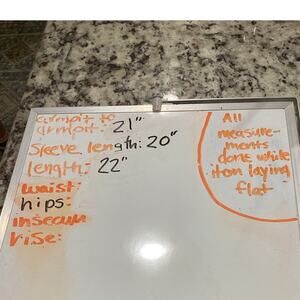 armpit to
armpit: 21"
Sleeve length: 20"
length: 22"
waist:
hips:
inseam
rise:
All
measure-
ments
done while
item laying
flat